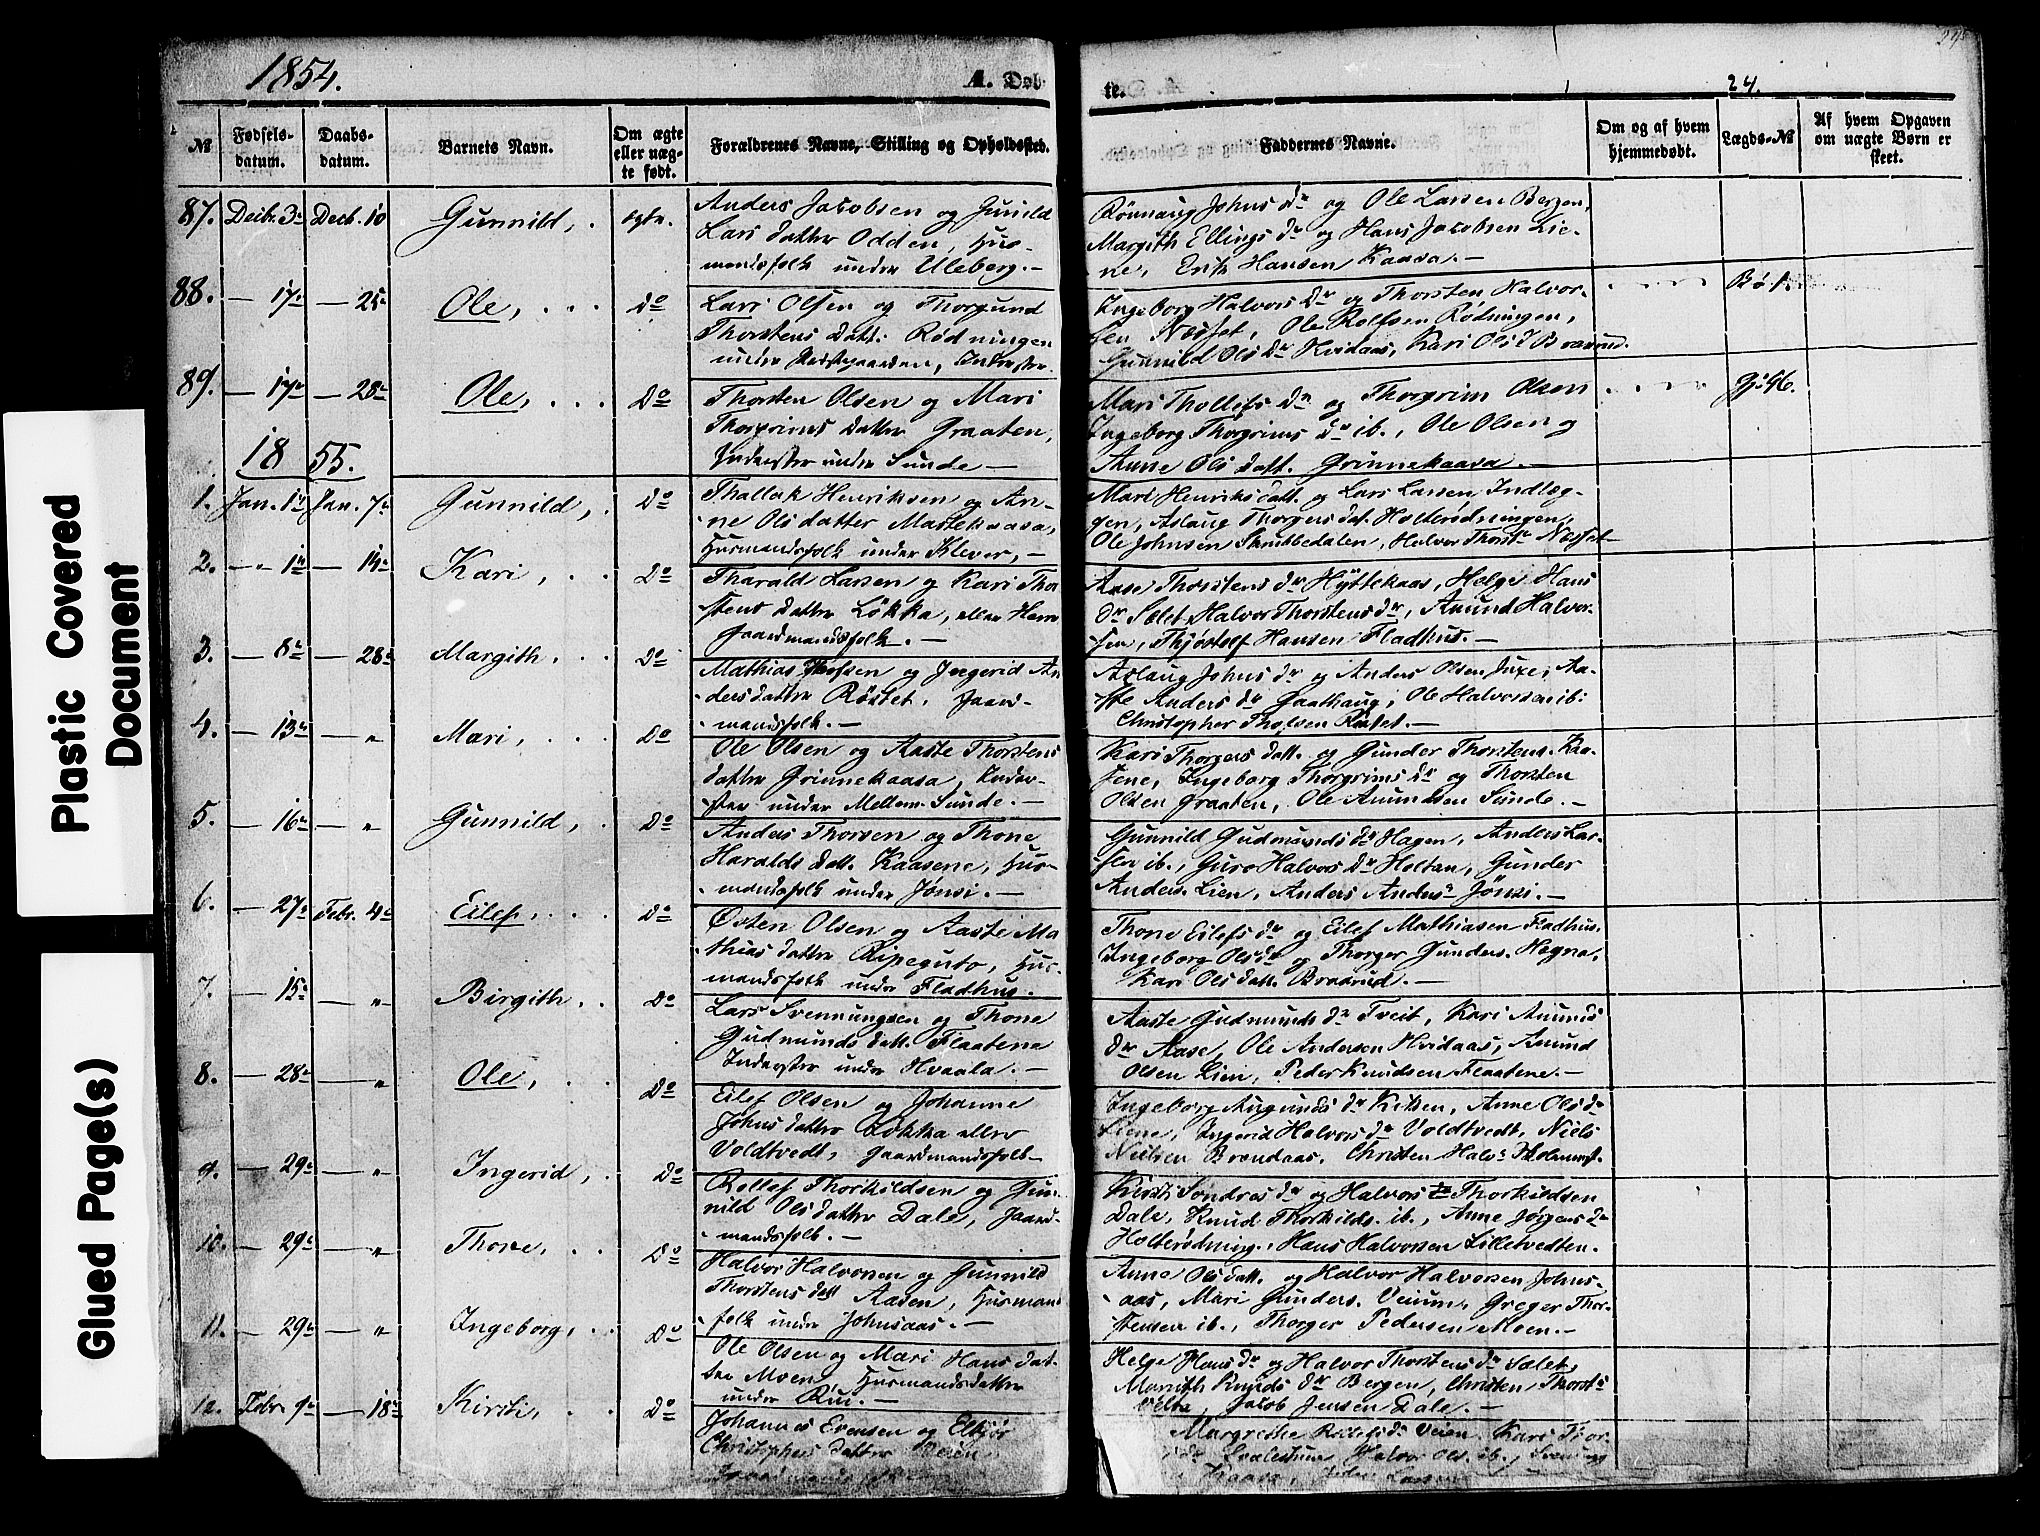 1854.
A. Døb
te.
24.
№
Fødsels-
datum.
Daabs-
datum.
Barnets Navn.
Om ægte
eller uæg-
te født.
Forældrenes Navne, Stilling og Opholdssted.
Faddernes Navne.
Om og af hvem
hjemmedøbt.
Lægds-№
Af hvem Opgaven
om uægte Børn er
skeet.
87. Decbr. 3 Decb. 10 Gunnild, ægte.
Anders Jacobsen og Gunild
Lars datter Odden, Hus-
mandsfolk under Uleberg.—
Rønnaug Johns dr og Ole Larsen Bergen,
Margith Ellings dr og Hans Jacobsen Lie-
ne, Erik Hansen Kaasa.—
88. — 17 — 25 Ole, Do
Lars Olsen og Thorgund
Thorstens datt. Rødningen
under Præstgaarden, Inderster.
Ingeborg Halvors dr og Thorsten Halvor-
sen Næsset, Ole Rolfsen Rødningen,
Gunnild Ols dr Hvidaas, Kari Ols d Braarud.
Bø 1.
89. — 17 — 28 Ole, Do
Thorsten Olsen og Mari
Thorgrims datter Graaten,
Inderster under Sunde—
Mari Thollefs dr og Thorgrim Olsen
Ingeborg Thorgrims dr ib., Ole Olsen og
Anne Ols datt. Grinnekaasa.—
1855.
1. Jan. 1 Jan. 7 Gunnild, Do
Thallak Henriksen og An-
ne Ols datter Mastekaasa,
Husmandsfolk under Klever,—
Mari Henriks datt. og Lars Larsen Indlæg-
gen, Aslaug Thorgers dat. Holterødningen,
Ole Johnsen Stubbedalen, Halvor Thorst. Næsset
2. — 1 — 14 Kari, Do
Tharald Larsen og Kari Thor
stens datter Løkka, eller Hem
Gaardmandsfolk.—
Aase Thorstens dr Hyttekaas, Helge Hans
dr Sælet, Halvor Thorstens dr, Amund Halvor-
sen, Thjostolf Hansen Fladhus.—
3. — 8 — 28 Margith, Do
Mathias Olsen og Ingerid An
ders datter Røstet, Gaard-
mandsfolk.—
Aslaug Johns dr og Anders Olsen Juxe, Aa-
ste Anders dr Gaathaug, Ole Halvorsen ib:
Christopher Tholsen Røstet.—
4. — 13 — „ Mari, Do
Ole Olsen og Aaste Thorstens
datter Grinnekaasa, Inder-
ster under Mellem Sunde.—
Kari Thorgers datt. og Gunder Thorstens. Kaa-
sene, Ingeborg Thorgrims dr og Thorsten
Olsen Graaten, Ole Amundsen Sunde.—
5. — 16 — „ Gunnild, Do
Anders Thorsen og Thone
Haralds datt. Kaasene, Hus-
mandsfolk under Jønsi.—
Gunnild Gudmunds dr Hagen, Anders Lar-
sen ib., Guro Halvors dr Holtan, Gunder
Anders. Lien, Anders Anders. Jønsi.—
6. — 27 Febr. 4 Eilef, Do
Østen Olsen og Aaste Ma
thias datter Ripeguto, Hus-
mandsfolk under Fladhus.
Thone Eilefs dr og Eilef Mathiasen Fladhus,
Ingeborg Ols dr og Thorger Gunders. Hegna,
Kari Ols datt. Braarud.—
7. — 15 — „ Birgith, Do
Lars Svennungsen og Thone
Gudmunds datt. Flaatene
Inderster under Hvaala.—
Aaste Gudmunds dr Tveit, Kari Amunds
dr Aase, Ole Andersen Hvidaas, Amund
Olsen Lien, Peder Knudsen Flaatene.—
8. — 28 — „ Ole, Do
Eilef Olsen og Johanne
Johns datter Løkka eller
Voldtvedt, Gaardmandsfolk—
Ingeborg Augunds dr Kilsen, Anne Ols dr
Liene, Ingerid Halvors dr Voldtvedt, Niels
Nielsen Brændaas, Christen Halv. Holmenst.
9. — 29 — „ Ingerid, Do
Rollef Thorkildsen og Gun
nild Ols datter Dale, Gaard-
mandsfolk.—
Kirsti Sondres dr og Halvor Thorkildsen
Dale, Knud Thorkilds. ib., Anne Jørgens dr
Holterødning., Hans Halvorsen Lilletvedten.
10. — 29 — „ Thone, Do
Halvor Halvorsen og Gunnild
Thorstens datt Aasen, Husmand
folk under Johnsaas.—
Anne Ols datt. og Halvor Halvorsen Johns-
aas, Mari Gunders. Veium, Greger Thor-
stensen ib., Thorger Pedersen Moen.—
11. — 29 — „ Ingeborg, Do
Ole Olsen og Mari Hans dat-
ter Moen, Husmandsdatter
under Rui.—
Helge Hans dr og Halvor Thorstens dr Sælet,
Margith Knuds dr Bergen, Christen Thorst.
Velta, Jacob Jensen Dale.—
12. Febr. 9 — 18 Kirsti, Do
Johannes Evensen og Elbjør
Christophers datter Veien,
Margrethe Rollefs dr Veien, Kari Thor-
Evalestum, Halvor Ols. ib.,
Kaasa,
Plastic Covered
Document
Glued Page(s)